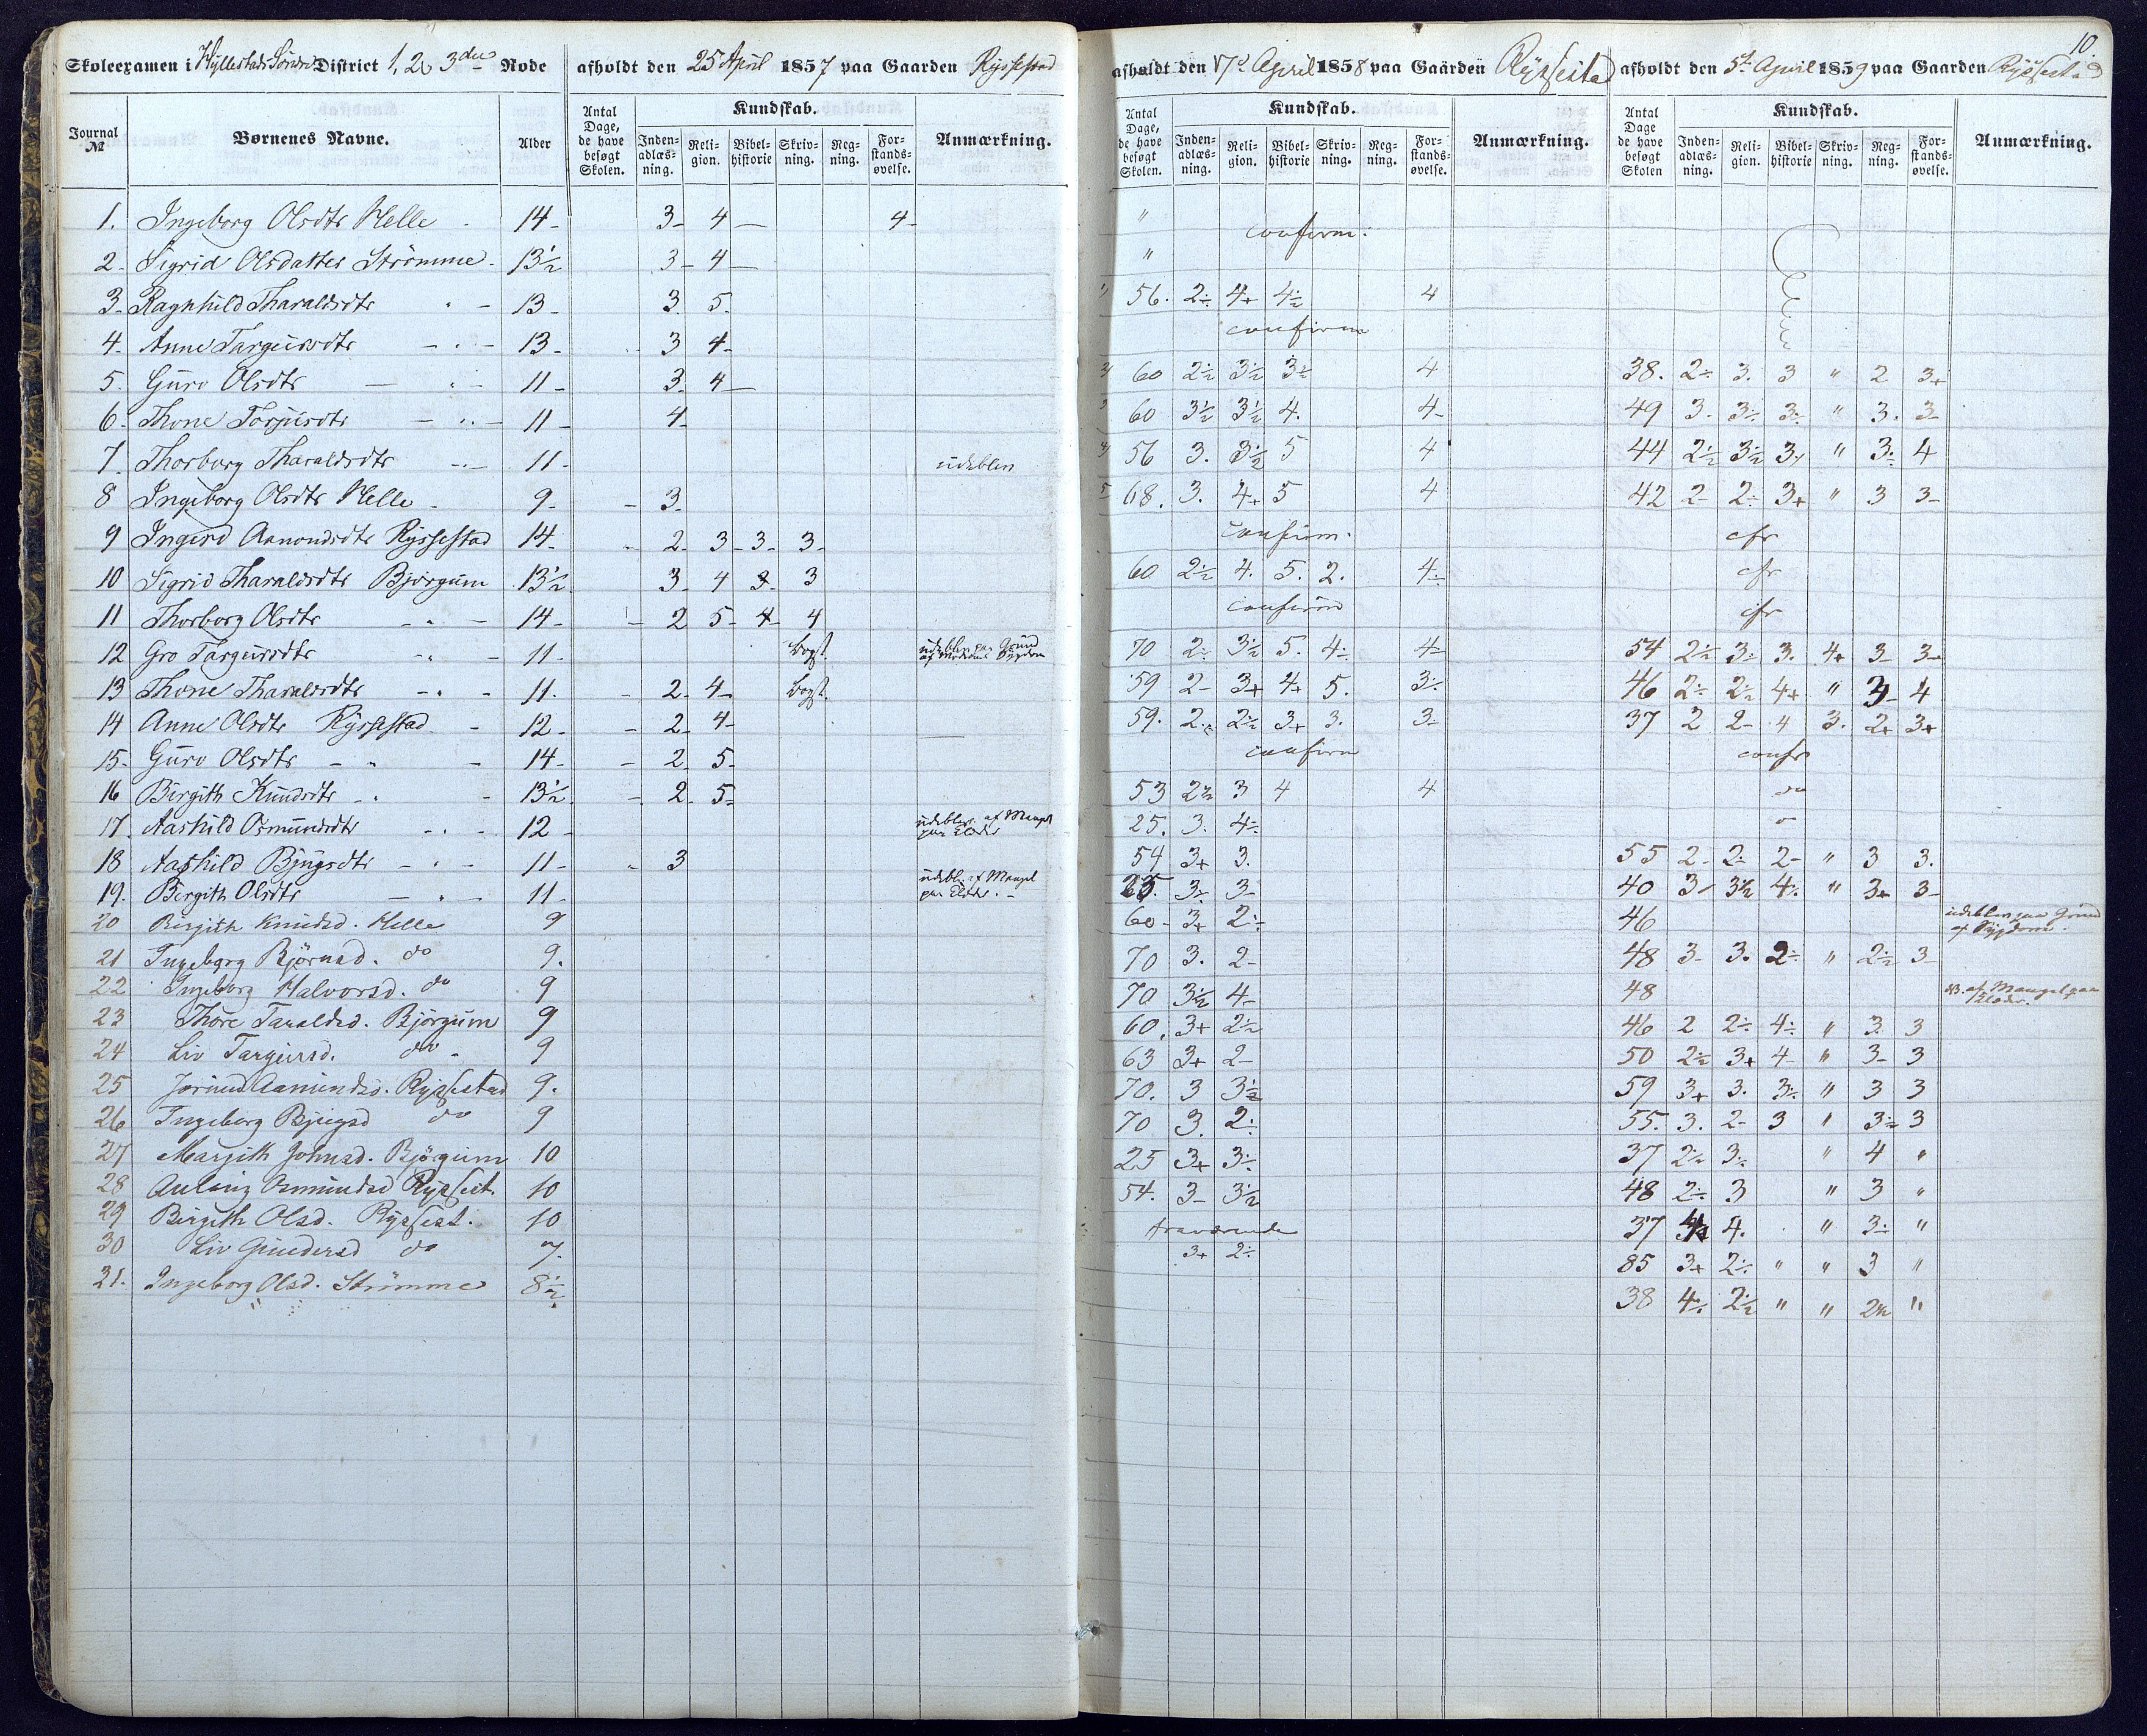 10.
Skoleexamen i Hyllestads Søndre District 1, 2 & 3die Rode afholdt den 25 April 1857 paa Gaarden Ryssestad afholdt den 17de April 1858 paa Gaarden Ryssestad afholdt den 5te April 1859 paa Gaarden Rysfestad
Journal № Børnenes Navne. Alder Antal Dage, de have besøgt Skolen. Kundskab. Inden-adlæs-ning. Reli-gion. Bibel-historie Skriv-ning. Reg-ning. For-stands-øvelse. Anmærkning. Antal Dage, de have besøgt Skolen. Kundskab. Inden-adlæs-ning. Reli-gion. Bibel-historie Skriv-ning. Reg-ning. For-stands-øvelse. Anmærkning. Antal Dage de have besøgt Skolen Kundskab. Inden-adlæs-ning. Reli-gion. Bibel-historie Skriv-ning. Reg-ning. For-stands-øvelse. Anmærkning.
1. Ingeborg Olsdtr Helle 14- 3- 4- 4- " confirm.
2- Sigrid Olsdatter Strømme 13½ 3- 4- "
3- Raghnild Tharaldsdtr " - 13- 3. 5. 56. 2÷ 4+ 4½ 4
4- Anne Targeirsdtr - " - 13- 3 4- confirm
5. Guro Olsdtr - " - 11- 3. 4- 60 2½ 3½ 3½ 4 38. 2÷ 3. 3 " 2 3+
6- Thone Torjusdtr - " - 11- 4- 60 3½ 3½ 4. 4- 49 3. 3÷ 3÷ " 3. 3-
7. Thorborg Tharaldsdtr - " - 11- udeblev 56 3. 3½ 5 4 44 2½ 3½ 3+ " 3÷ 4
8 Ingeborg Olsdtr Helle 9- 3- 68. 3. 4+ 5 4 42 2- 2÷ 3+ " 3 3-
9 Ingerd Aanondsdtr Ryssestad 14- 2- 3- 3- 3- confirm. cfr
10 Sigrid Tharaldsdtr Bjørgum 13½ 3- 4 3- 3 60 2½ 4. 5. 2. 4÷ cfr
11 Thorborg Olsdtr - " - 14- 2 5- 4- 4 confirm cfr
12 Gro Targeirsdtr - " - 11- bogst. udeblev paa Grund af Moderens Sygdom 70 2÷ 3½ 5. 4÷ 4- 54 2½ 3÷ 3. 4+ 3- 3-
13 Thone Tharaldsdtr - " - 11. 2- 4- bogst. 59 2- 3+ 4+ 5. 3÷ 46 2÷ 2½ 4+ " 3- 4
14 Anne Olsdtr Ryssestad - 12- 2- 4- 59. 2÷ 2½ 3+ 3. 3- 37 2 2- 4 3. 2+ 3+
15- Guro Olsdtr - " - 14- 2- 5- confirm confr
16 Birgith Knudsdtr - " - 13½ 2- 5- 53 2½ 3 4 4 do
17. Aashild Osmundsdtr - " - 12- udeblev af Mangel paa Klæder 25. 3. 4÷
18 Aashild Bjugsdtr - " - 11- 3 54 3+ 3. 55 2- 2÷ 2- " 3 3.
19. Bergith Olsdtr - " - 11- udebl. af Mangel paa Klæder. - 25. 3÷ 3- 40 3- 3½ 4÷ " 3+ 3-
20 Birgith Knudsd. Helle 9 60- 3+ 2÷ 46 udeblev paa Grund af Sygdom.
21 Ingeborg Bjørnsd. do 9. 70 3. 2- 48 3- 3. 2÷ " 2½ 3-
22 Ingeborg Halvorsd. do 9 70 3½ 4- 48 af Mangel paa Klæder.
23 Thore Taraldsd. Bjørgum 9 60. 3+ 2½ 46 2 2÷ 4÷ " 3. 3
24 Liv Targeirsd. do 9 63 3+ 2- 50 2½ 3+ 4- " 3- 3
25 Jorund Aamundsd. Rysfestad 9. 70. 3 3½ 59 3+ 3. 3÷ " 3 3
26 Ingeborg Bjugsd do 9 70 3. 2÷ 55. 3. 2- 3 " 3÷ 3
27 Margith Johnsd. Bjørgum 10 25 3+ 3÷ 37 2½ 3÷ " 4 "
28 Osmundsd Rysfest. 10 54. 3- 3½ 48 2÷ 3 " 3 "
29 Birgith Olsd. Rysfest. 10 fraværende 37 4. " 3÷ "
30 Liv Gundersd do 7. 3+ 2÷ 85 3+ 2÷ " " 3 "
31. Ingeborg Olsd. Strømme 8½ 38 4÷ 2½ " " 2½ "